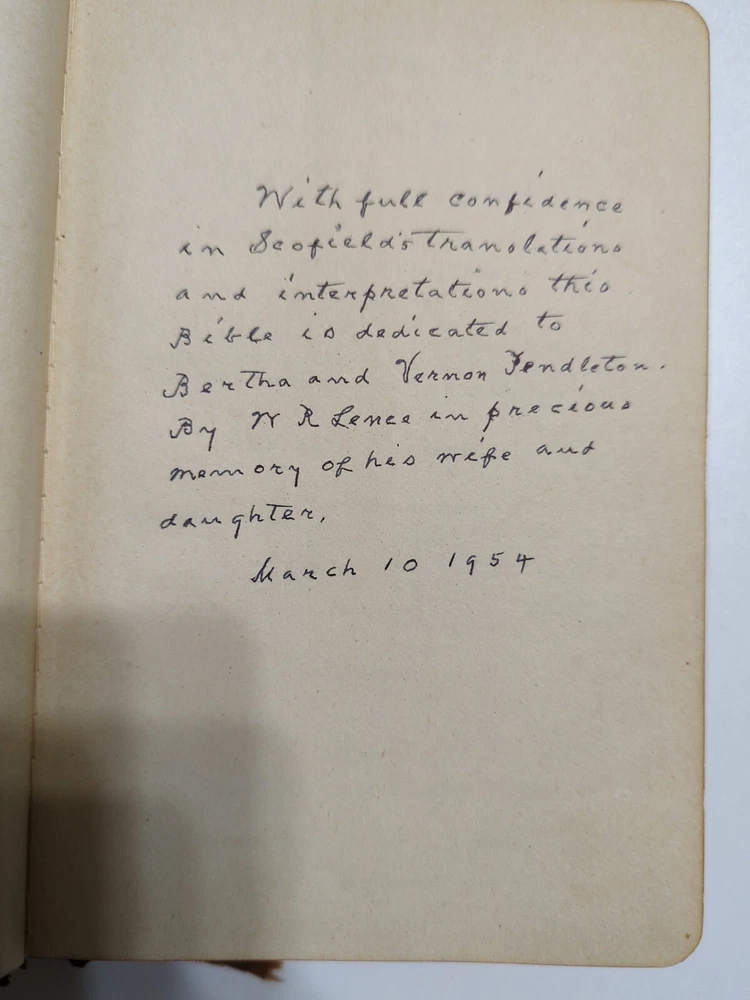 With full confidence
in Scofield's translations
and interpretations this
Bible is dedicated to
Bertha and Vernon Pendleton.
By W R Lence in precious
memory of his wife and
daughter.
March 10 1954